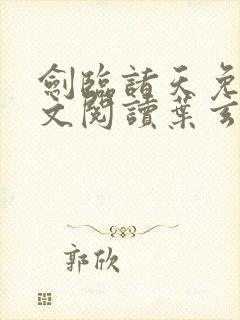 劍臨諸天免
文閱讀葉玄
郭欣